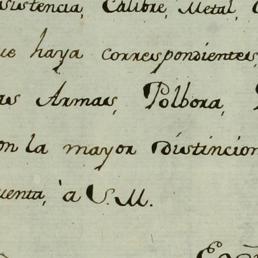 sistencia, Calibre, Metal,
ue haya correspondientes
as Armas, Polbora,
on la mayor distincion
uenta, à S. M.